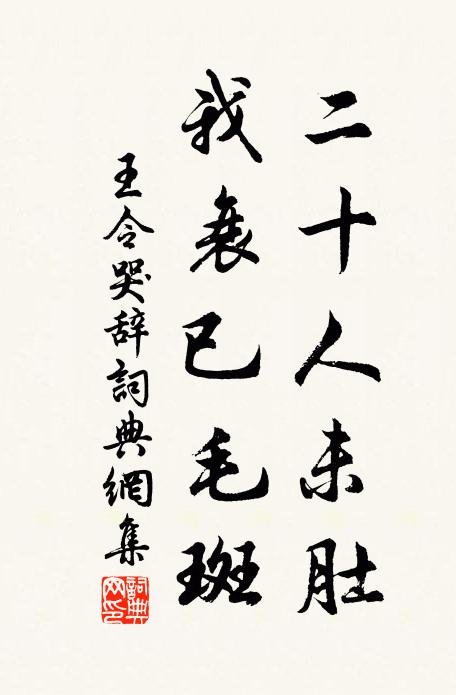 二十人未壯
我衰已毛斑
王令哭辞詞典網集
詞典
网印